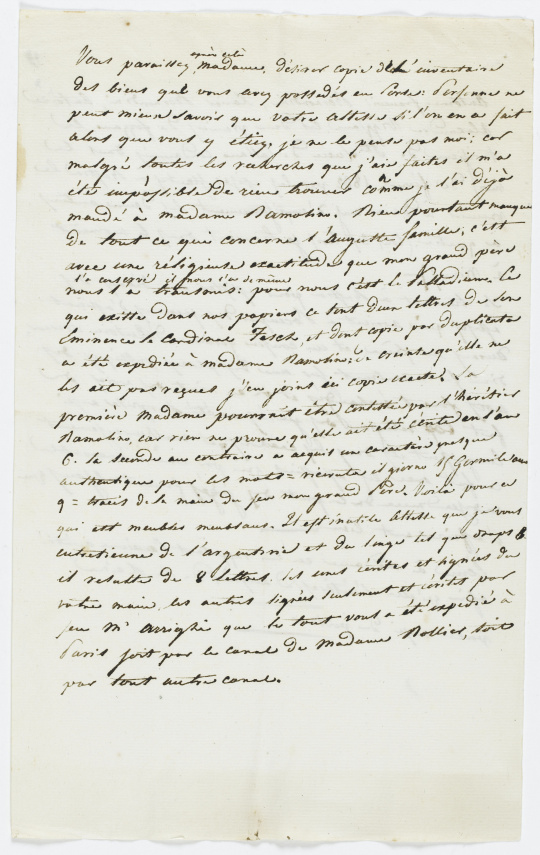 après cela
Vous paraissez, madame, désirer copie de l'inventaire
des biens que vous avez possédés en Corse: Personne ne
peut mieux savoir que votre altesse si l'on en a fait
alors que vous y étiez, je ne le pense pas moi: car
malgré toutes les recherches que j'aie faites il m'a
été impossible de rien trouver comme je l'ai déjà
mandé à madame Ramolino. Rien pourtant manque
de tout ce qui concerne l'Auguste famille; c'est
avec une réligieuse exactitude que mon grand père
l'a conservé et nous l'a de même
nous l'a transmis: pour nous c'est le Palladium. Ce
qui existe dans nos papiers ce sont deux lettres de son
Eminence le Cardinal Fesch, et dont copie par duplicata
a été expediée à madame Ramolino; de crainte qu'elle ne
les ait pas reçues j'en joins ici copie exacte. La
première Madame pourrait être contestée par l'Héritier
Ramolino, car rien ne prouve qu'elle ait été écrite en l'an
6. la seconde au contraire a acquit un caractère presque
authentique pour les mots = ricevuta il giorno 15 Germile anno
9 = tracés de la main de feu mon grand Père. Voilà pour ce
qui est meubles meublans. Il est inutile Altesse que je vous
entretienne de l'argenterie et du linge dès que
il resulte de 8 lettres, les unes écrites et signées de
votre main, les autres signées seulement et écrites par
feu Mr Arrighi que le tout vous a été expedié à
Paris soit par le canal de Madame Bollier, soit
par tout autre canal.